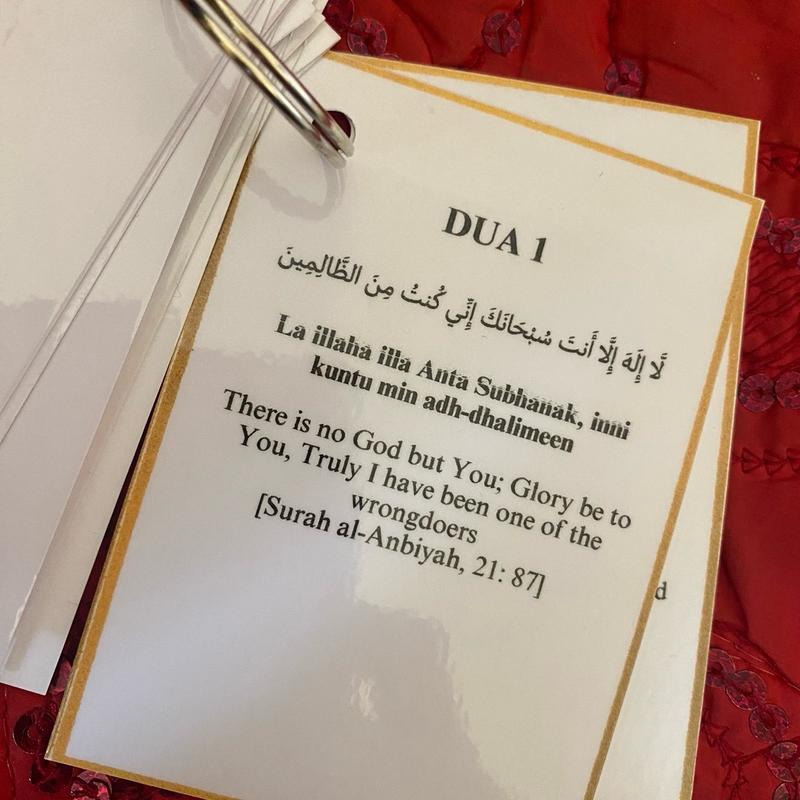 DUA 1
لَّا إِلَهَ إِلَّا أَنتَ سُبْحَانَكَ إِنِّي كُنتُ مِنَ الظَّالِمِينَ
La illaha illa Anta Subhanak, inni
kuntu min adh-dhalimeen
There is no God but You; Glory be to
You, Truly I have been one of the
wrongdoers
[Surah al-Anbiyah, 21: 87]
d